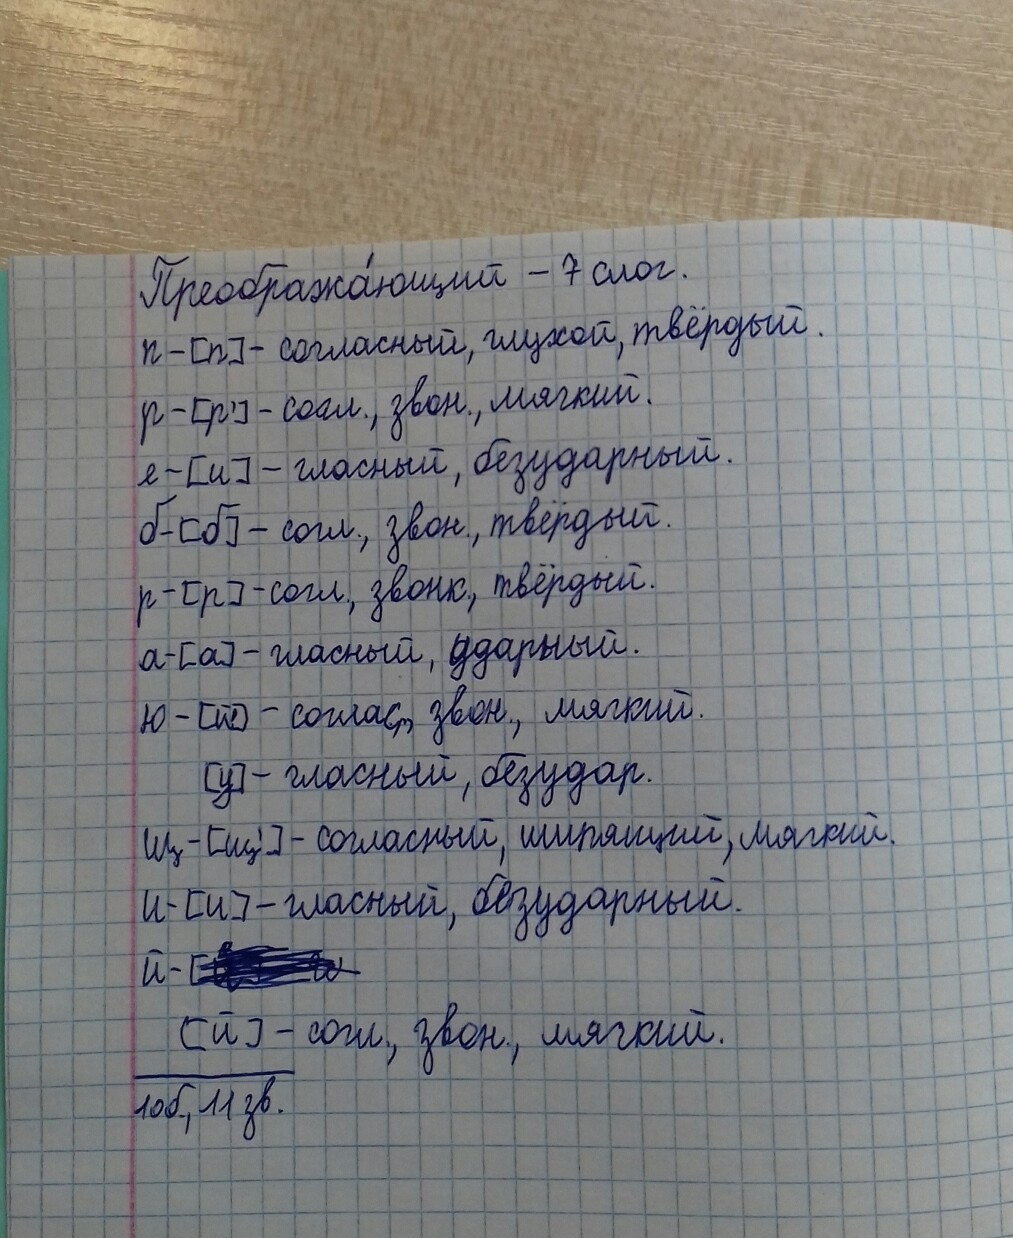 Преобража́ющий – 7 слог.
п – [п] – согласный, глухой, твёрдый.
р – [р'] – согл., звон., мягкий.
е – [и] – гласный, безударный.
б – [б] – согл., звон., твёрдый.
р – [р] – согл., звонк., твёрдый.
а – [а] – гласный, ударный.
ю – [й] – соглас., звон., мягкий.
[у] – гласный, безудар.
щ – [щ'] – согласный, шипящий, мягкий.
и – [и] – гласный, безударный.
й –
[й] – согл., звон., мягкий.
10б., 11 зв.